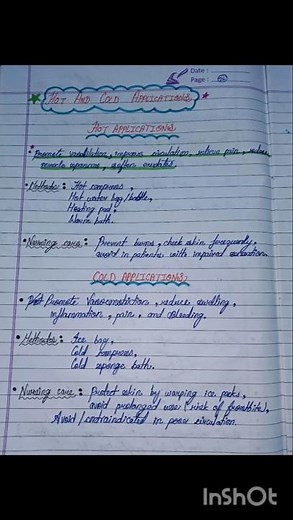 Date :
Page :
HOT AND COLD APPLICATIONS
HOT APPLICATIONS
Promote vasodilation, improve circulation, relieve pain, reduce
muscle spasms, soften exudates.
• Methods : Hot compress,
Hot water bag/bottle,
Heating pad,
Warm bath.
• Nursing care : Prevent burns, check skin frequently,
avoid in patients with impaired sensation.
COLD APPLICATIONS
• Promote Vasoconstriction, reduce swelling,
inflammation, pain, and bleeding.
• Methods : Ice bag,
Cold compress,
Cold sponge bath.
• Nursing care : Protect skin by wraping ice packs,
avoid prolonged uses (risk of frostbite),
Avoid/contraindicated in poor circulation.
InShOt